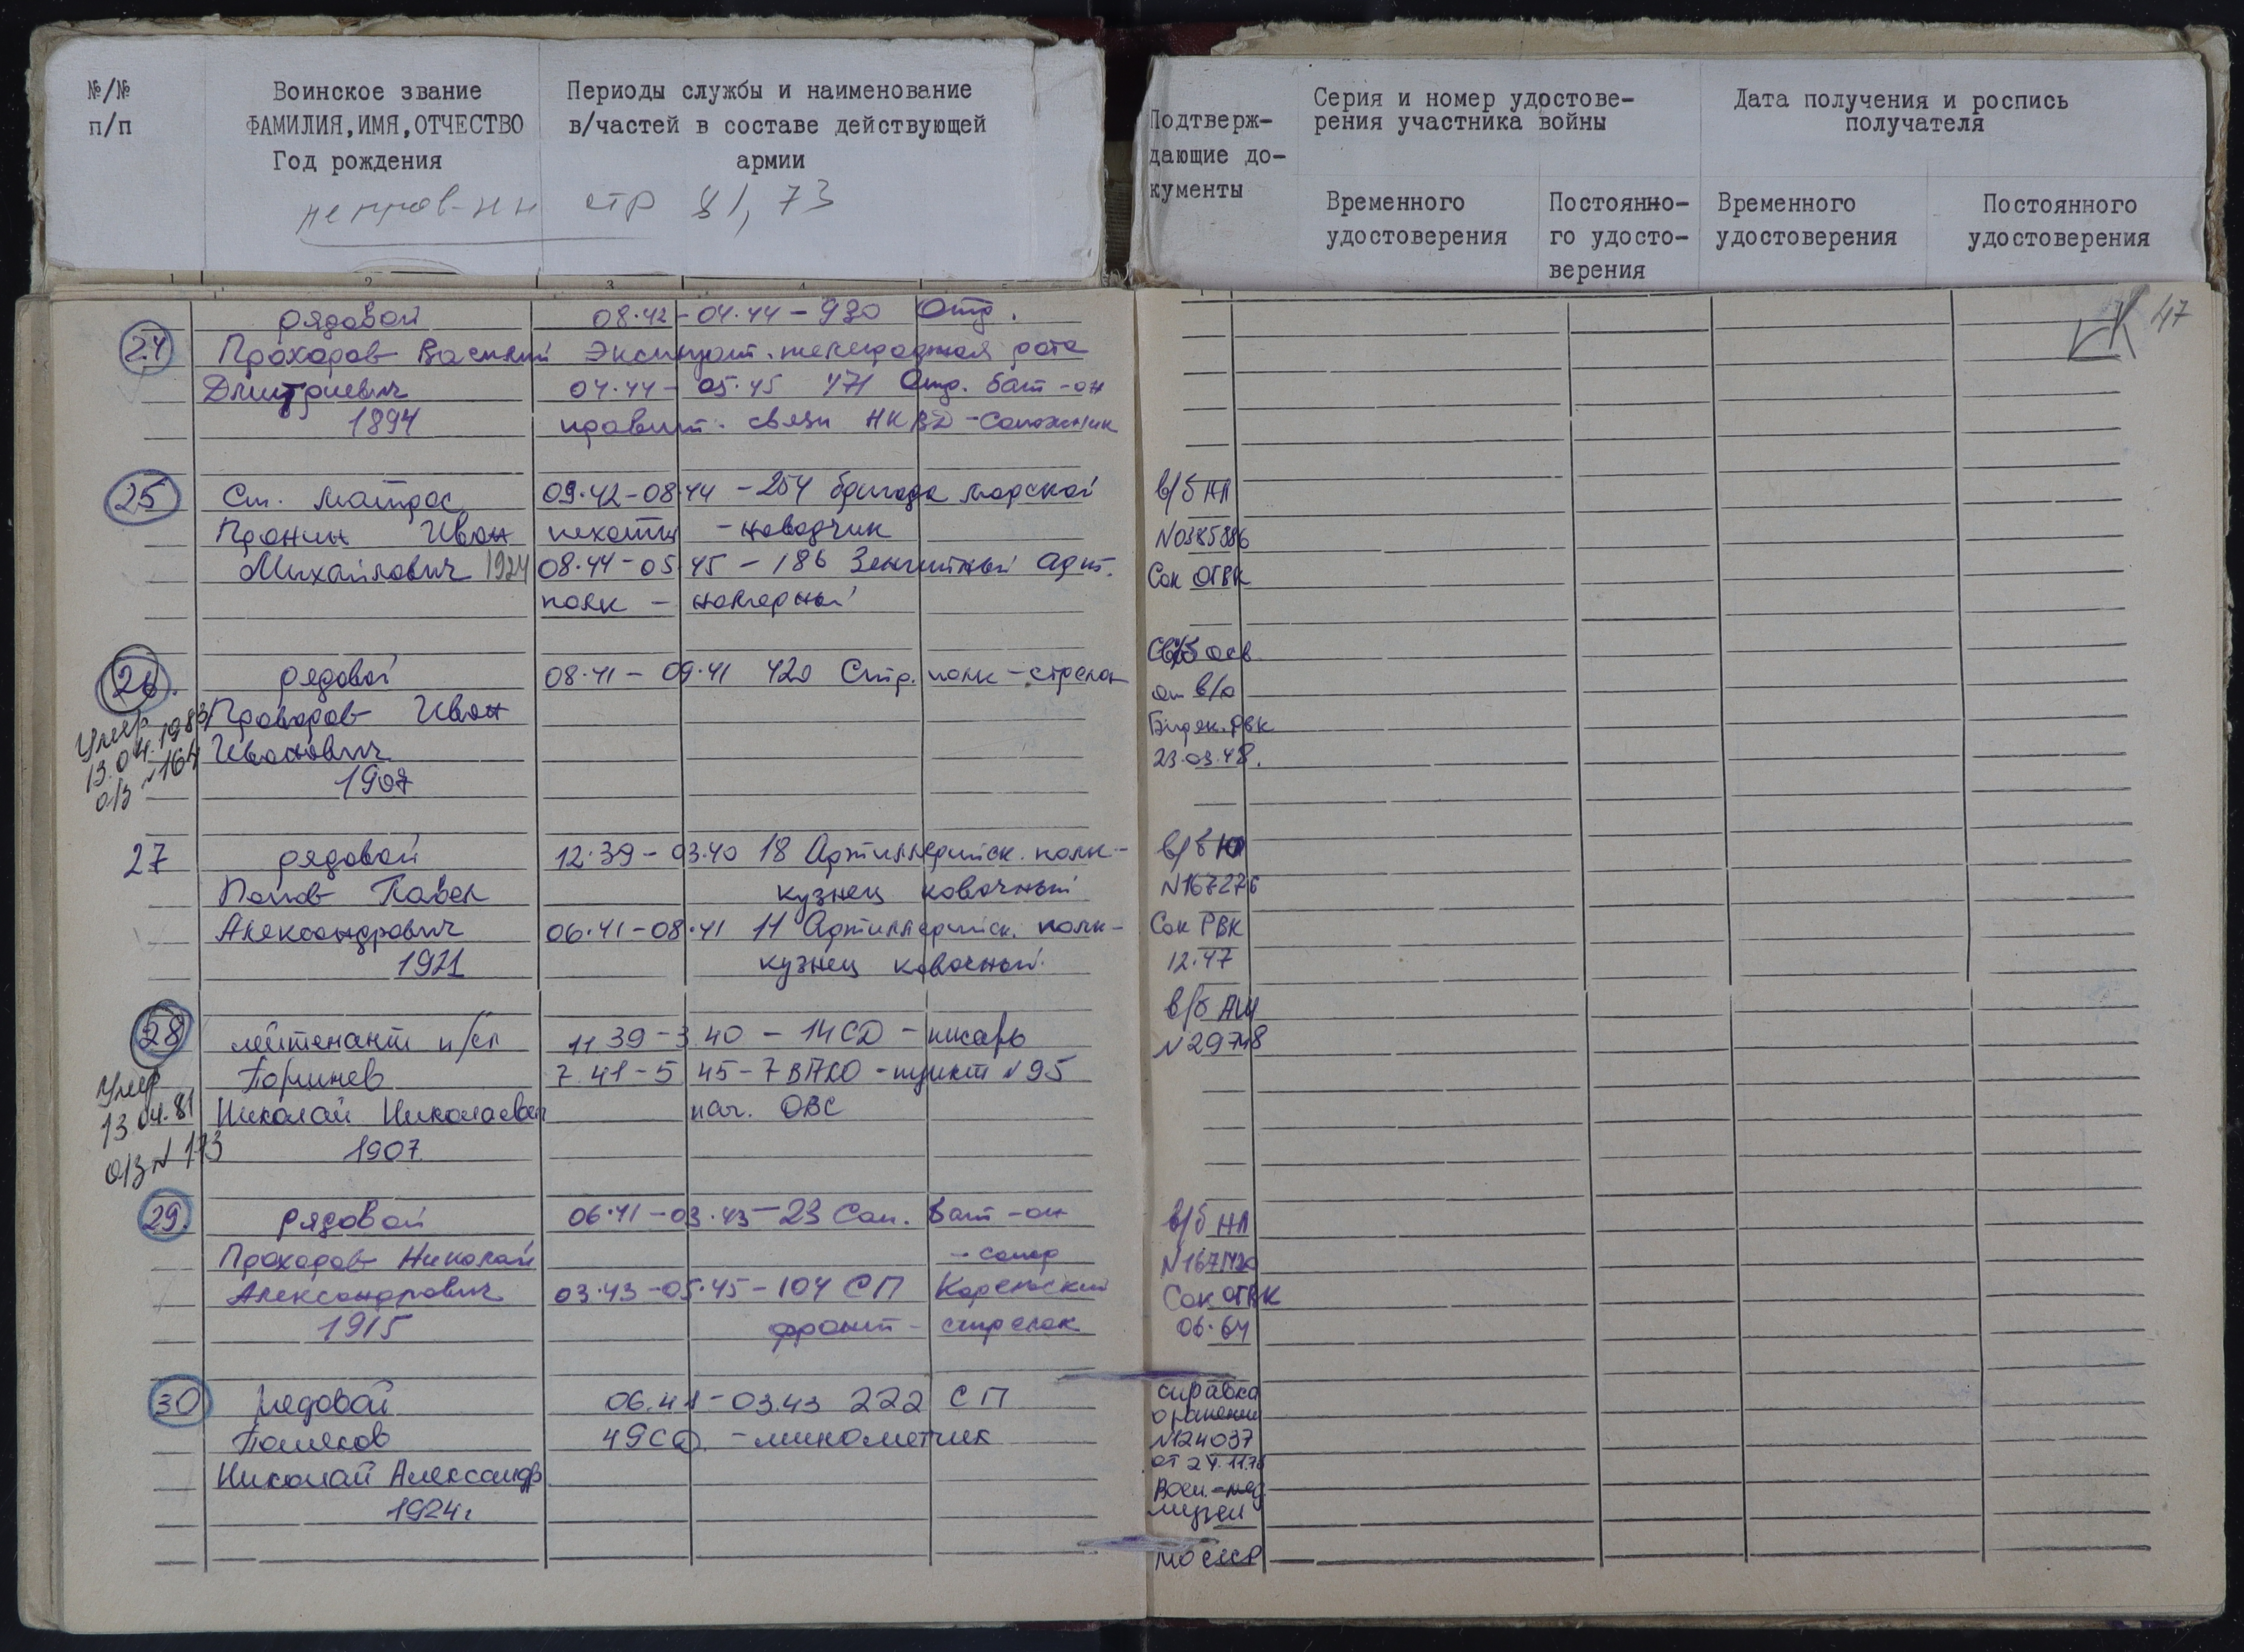 №/№
п/п
Воинское звание
ФАМИЛИЯ, ИМЯ, ОТЧЕСТВО
Год рождения
Периоды службы и наименование
в/частей в составе действующей
армии
стр 81, 73
1 2 3 4 5
24
рядовой
Прохоров Василий
Дмитриевич
1894
08.42-04.44-930 Отд.
Эксплуат. телеграфная рота
04.44-05.45 471 Отд. бат-он
правит. связи НКВД-Сапожник
25
Ст. матрос
Пронин Иван
Михайлович 1924
09.42-08.44-254 бригада морской
пехоты - наводчик
08.44-05.45-186 Зенитный арт.
полк - номерной
26.
рядовой
Проворов Иван
Иванович
1907
Умер
13.04.1983
о/в №164
08.41-09.41 420 Стр. полк-стрелок
27
рядовой
Попов Павел
Александрович
1921
12.39-03.40 18 Артиллерийск. полк-
кузнец ковочный
06.41-08.41 11 Артиллерийск. полк-
кузнец ковочный.
28
лейтенант и/сл
Поршнев
Николай Николаевич
1907
Умер
13.04.81
11.39-3.40-14СД-писарь
7.41-5.45-7 ВАСО-пункт №95
нач. ОВС
29.
рядовой
Прохоров Николай
Александрович
1915
06.41-03.43-23 Сап. бат-он
- сапер
03.43-05.45-104 СП Карельский
фронт - стрелок
30
рядовой
Поляков
Николай Александр
1924г
06.41-03.43 222 СП
49СД. -минометчик
Подтверж-
дающие до-
кументы
Серия и номер удостове-
рения участника войны
Дата получения и роспись
получателя
Временного
удостоверения
Постоянно-
го удосто-
верения
Временного
удостоверения
Постоянного
удостоверения
47
в/б НЛ
№0385886
Сок ОГВК
осв
от в/о
РВК
23.03.48.
в/б
№167276
Сок РВК
12.47
в/б
№29748
в/б НЛ
Сок ОГВК
06.64
справка
о ранении
№124037
Воен.-мед.
музей
МО СССР